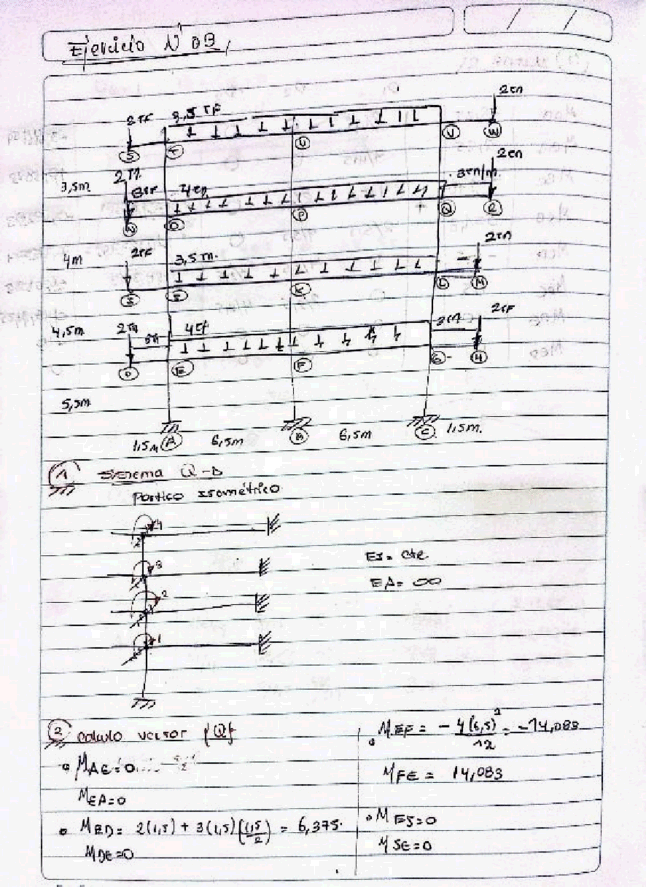 Ejercicio N° 09
2TF 3,5 TF 2Tn
S T U V W
3,5m 2Tn 3TF 4Tn 3Tn/m. 2Tn
N O P Q R
4m 2TF 3,5 Tn. 2Tn
K L M
4,5m 2Tn 3Tn 4TF 3Tn 2TF
D E F G H
5,5m
1,5m A 6,5m B 6,5m C 1,5m.
1 Sistema Q-D
Portico Isométrico
4
3
2
1
EI = cte
EA = ∞
2 Calculo vector {Q}
MAE=0
MEA=0
MED= 2(1,5) + 3(1,5)(1,5/2) = 6,375.
MDE=0
MEF = - 4(6,5)²/12 = -14,083
MFE = 14,083
MEJ=0
MJE=0